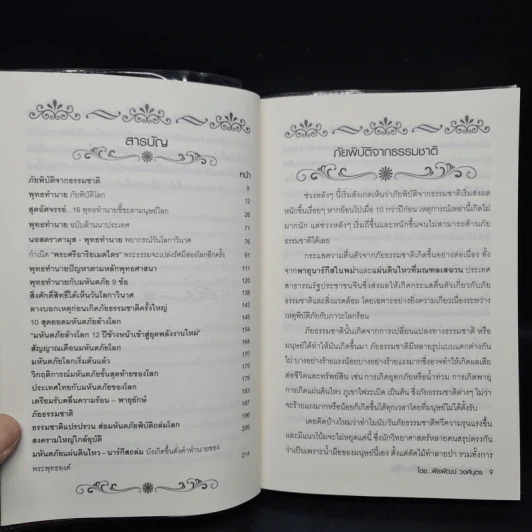 สารบัญ
หน้า
ภัยพิบัติจากธรรมชาติ 9
พุทธทำนาย ภัยพิบัติโลก 12
สุดอัศจรรย์...16 พุทธทำนายชี้ชะตามนุษย์โลก 26
พุทธทำนาย ฉบับล้านนาประเทศ 71
นอสตราดามุส - พุทธทำนาย พยากรณ์วันโลกาวินาศ 77
กำเนิด "พระศรีอาริยเมตไตร" พระธรรมจะเปล่งรัศมีสองโลกอีกครั้ง 91
พุทธทำนายปัญหาตามหลักพุทธศาสนา 115
พุทธทำนายกับมหันตภัย 9 ข้อ 118
สิ่งศักดิ์สิทธิ์ได้เห็นวันโลกาวินาศ
ลางบอกเหตุก่อนเกิดภัยธรรมชาติครั้งใหญ่
10 สุดยอดมหันตภัยล้างโลก
"มหันตภัยล้างโลก 12 ปีข้างหน้าเข้าสู่ยุคพลังงานใหม่"
สัญญาณเตือนมหันตภัยโลก
มหันตภัยโลกเริ่มต้นแล้ว
วิกฤติการณ์มหันตภัยขั้นสุดท้ายของโลก
ประเทศไทยกับมหันตภัยของโลก
เตรียมรับตื่นความร้อน – พายุยักษ์
ภัยธรรมชาติ
ธรรมชาติแปรปรวน ส่อมหันตภัยพิบัติถล่มโลก
สงครามใหญ่ใกล้อุบัติ
มหันตภัยแผ่นดินไหว – นาร์กีสถล่ม บังเกิดขึ้นดั่งคำทำนายของ 214
พระพุทธองค์
ภัยพิบัติจากธรรมชาติ
ช่วงหลังๆ นี้เริ่มสังเกตเห็นว่าภัยพิบัติจากธรรมชาติเริ่มส่งผล
หนักขึ้นเรื่อยๆ หากย้อนไปเมื่อ 10 กว่าปีก่อน เหตุการณ์เหล่านี้เกิดไม่
มากนัก แต่ช่วงหลังๆ เริ่มถี่ขึ้นและหนักขึ้นจนไม่สามารถต้านภัย
ธรรมชาติได้เลย
กระแสความตื่นตัวจากภัยธรรมชาติเกิดขึ้นอย่างต่อเนื่อง ทั้ง
จากพายุนาร์กีสในพม่าและแผ่นดินไหวที่มณฑลเสฉวน ประเทศ
สาธารณรัฐประชาชนจีนซึ่งส่งผลให้เกิดกระแสตื่นตัวเกี่ยวกับภัย
ธรรมชาติและสิ่งแวดล้อม โดยเฉพาะอย่างยิ่งความเกี่ยวเนื่องระหว่าง
เหตุภัยพิบัติกับภาวะโลกร้อน
ภัยธรรมชาตินั้นเกิดจากการเปลี่ยนแปลงทางธรรมชาติ หรือ
มนุษย์ได้ทำให้มันเกิดขึ้นมา ภัยธรรมชาติมีหลายรูปแบบแตกต่างกัน
ไป บางอย่างร้ายแรงน้อยบางอย่างร้ายแรงมากซึ่งอาจทำให้เกิดผลเสีย
ต่อชีวิตและทรัพย์สิน เช่น การเกิดอุทกภัยหรือน้ำท่วม การเกิดพายุ
การเกิดแผ่นดินไหว ภูเขาไฟระเบิด เป็นต้น ซึ่งภัยธรรมชาติต่างๆ ไม่ว่า
จะร้ายแรงมากหรือน้อยก็จะเกิดขึ้นได้ทุกเวลาโดยที่มนุษย์ไม่ได้ตั้งรับ
เคยคิดบ้างไหมว่าทำไมนับวันภัยธรรมชาติทวีความรุนแรงขึ้น
และมีแนวโน้มจะไม่หยุดแค่นี้ ซึ่งนักวิทยาศาสตร์หลายคนสรุปตรงกัน
ว่าเป็นเพราะน้ำมือของมนุษย์นี่เอง ตั้งแต่ตัดไม้ทำลายป่า รวมทั้งการ
โดย.. 9